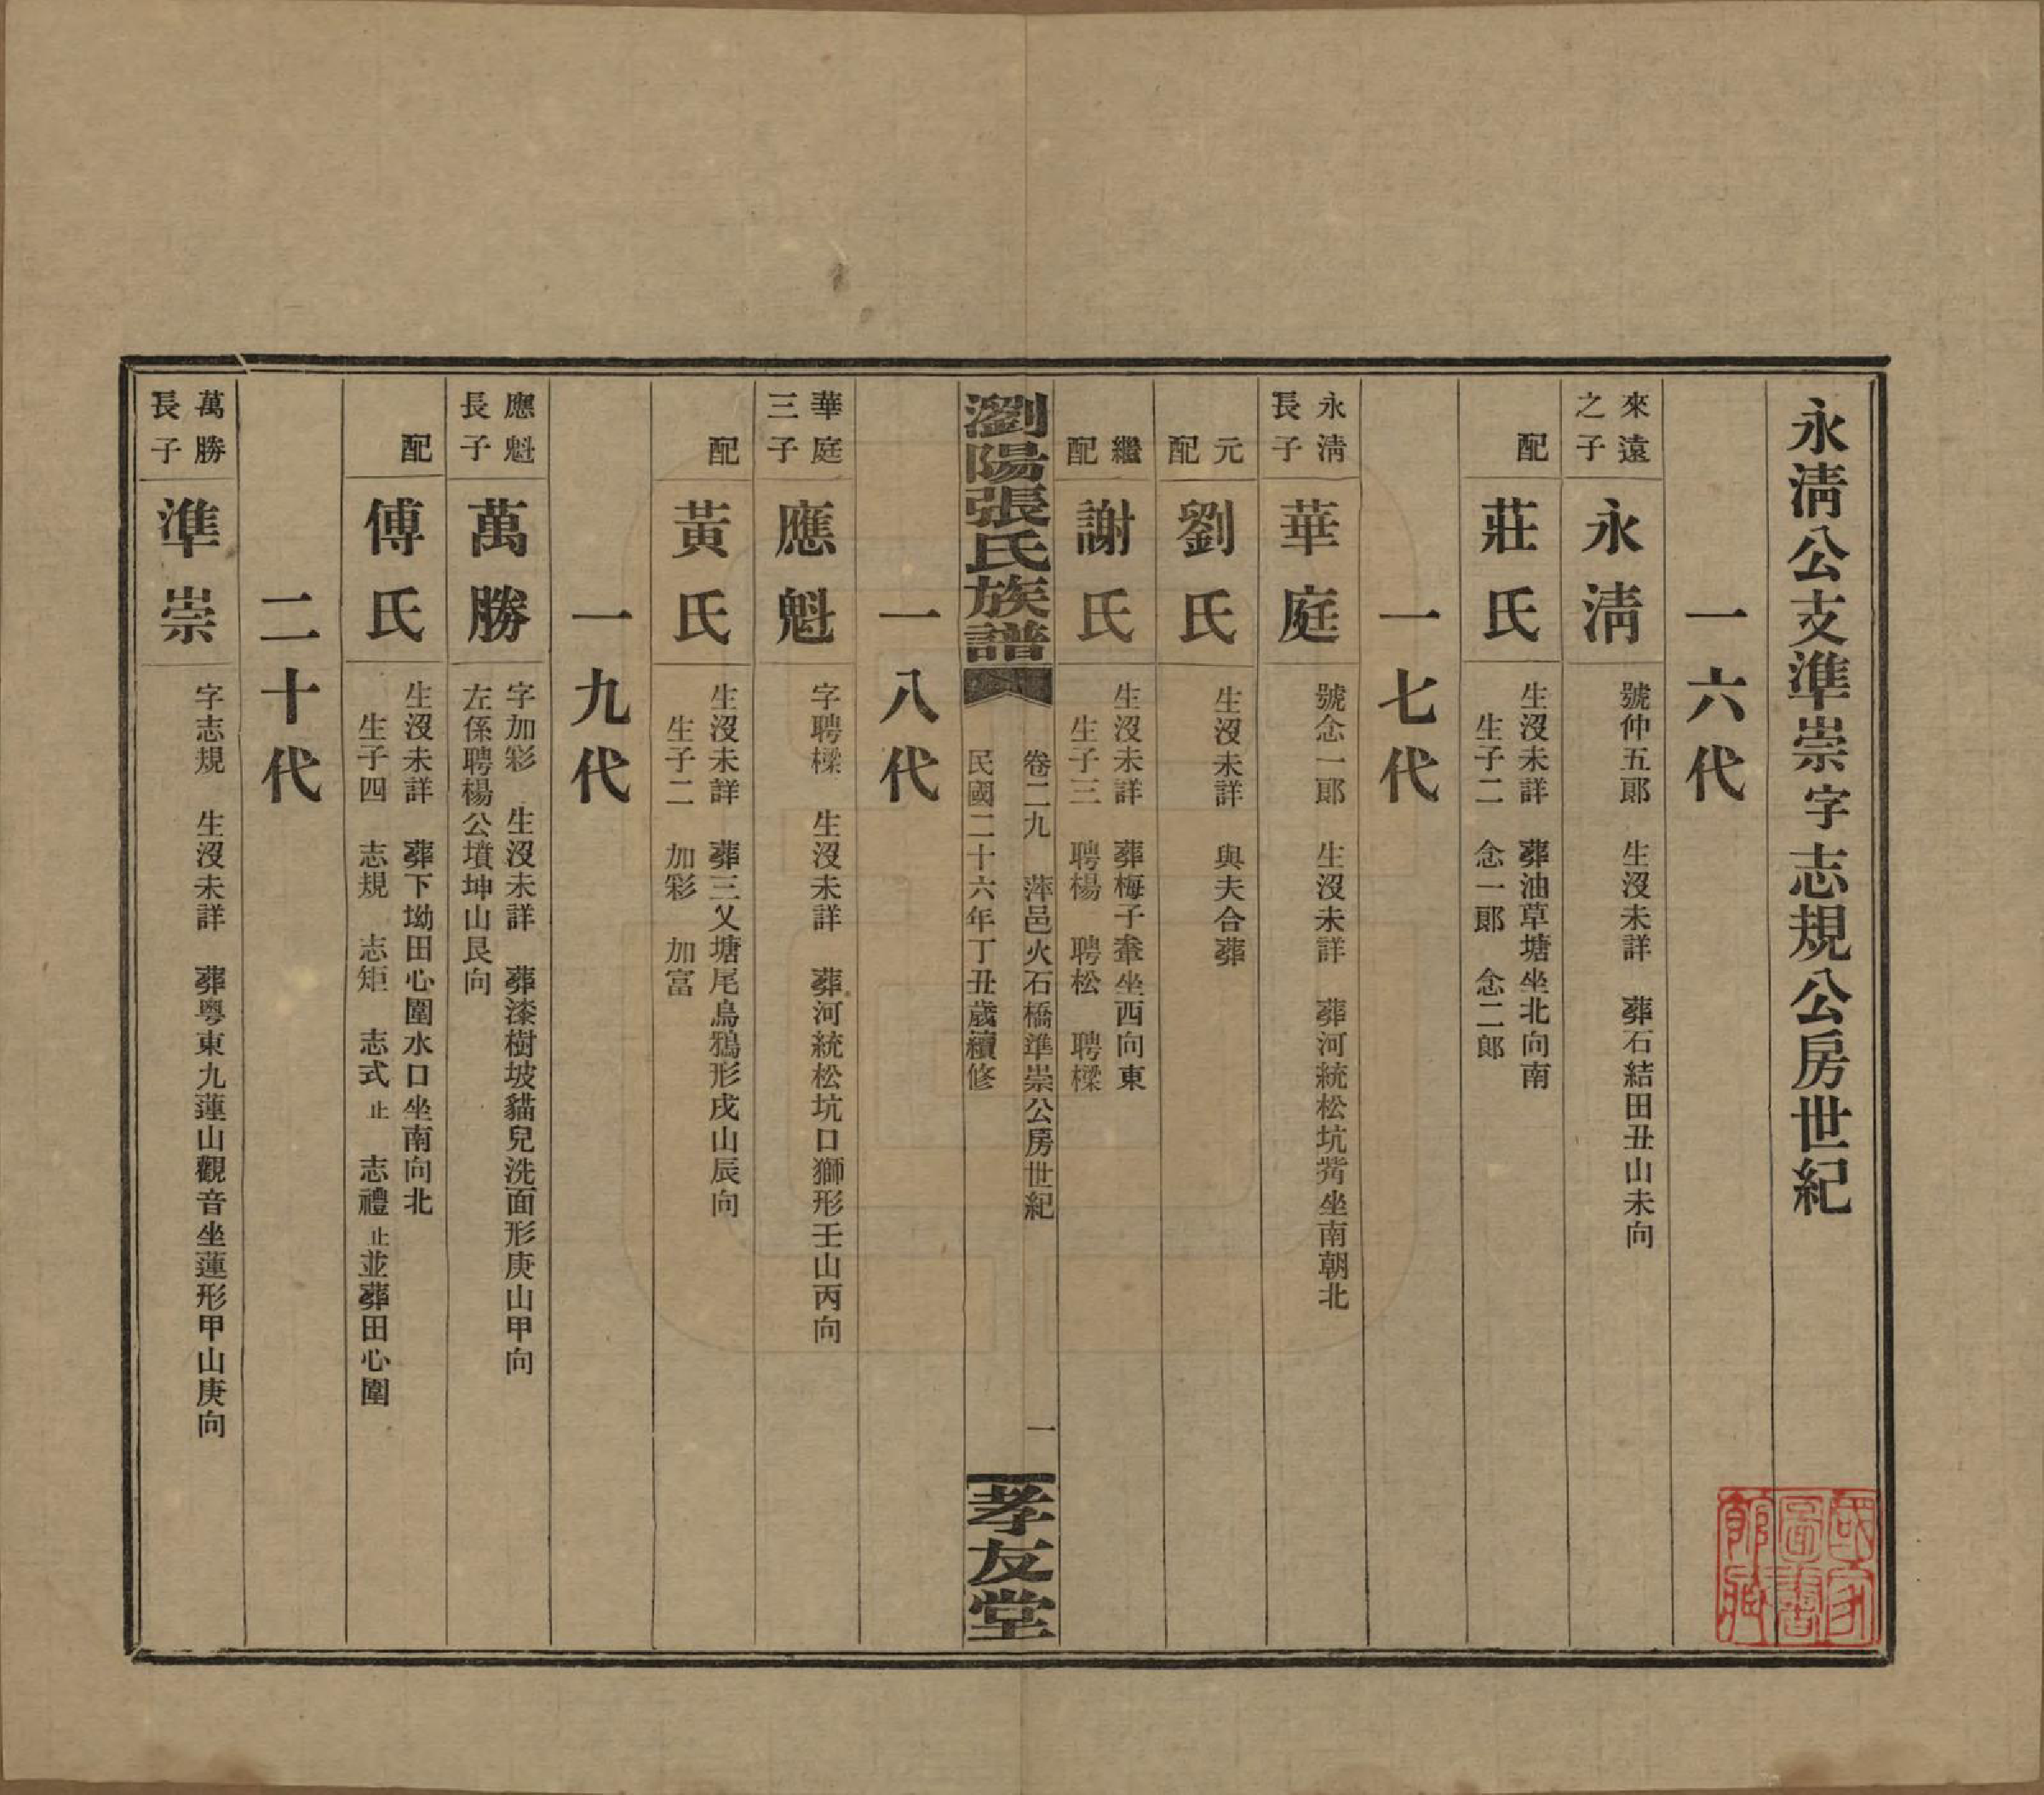 永清公支準崇字志規公房世紀
一六代
來遠之子
永清
號仲五郎　生沒未詳　葬石結田丑山未向
配
莊氏
生沒未詳　葬油草塘坐北向南
生子二　念一郎　念二郎
一七代
永清長子
華庭
號念一郎　生沒未詳　葬河統松坑背坐南朝北
元配
劉氏
生沒未詳　與夫合葬
繼配
謝氏
生沒未詳　葬梅子輋坐西向東
生子三　聘楊　聘松　聘樑
瀏陽張氏族譜
卷二九　萍邑火石橋準崇公房世紀　一
民國二十六年丁丑歲續修
孝友堂
一八代
華庭三子
應魁
字聘樑　生沒未詳　葬河統松坑口獅形壬山丙向
配
黃氏
生沒未詳　葬三乂塘尾烏鴉形戌山辰向
生子二　加彩　加富
一九代
應魁長子
萬勝
字加彩　生沒未詳　葬漆樹坡貓兒洗面形庚山甲向
左係聘楊公墳坤山艮向
配
傅氏
生沒未詳　葬下坳田心圍水口坐南向北
生子四　志規　志矩　志式止　志禮止並葬田心圍
二十代
萬勝長子
準崇
字志規　生沒未詳　葬粵東九蓮山觀音坐蓮形甲山庚向
國家圖書館藏